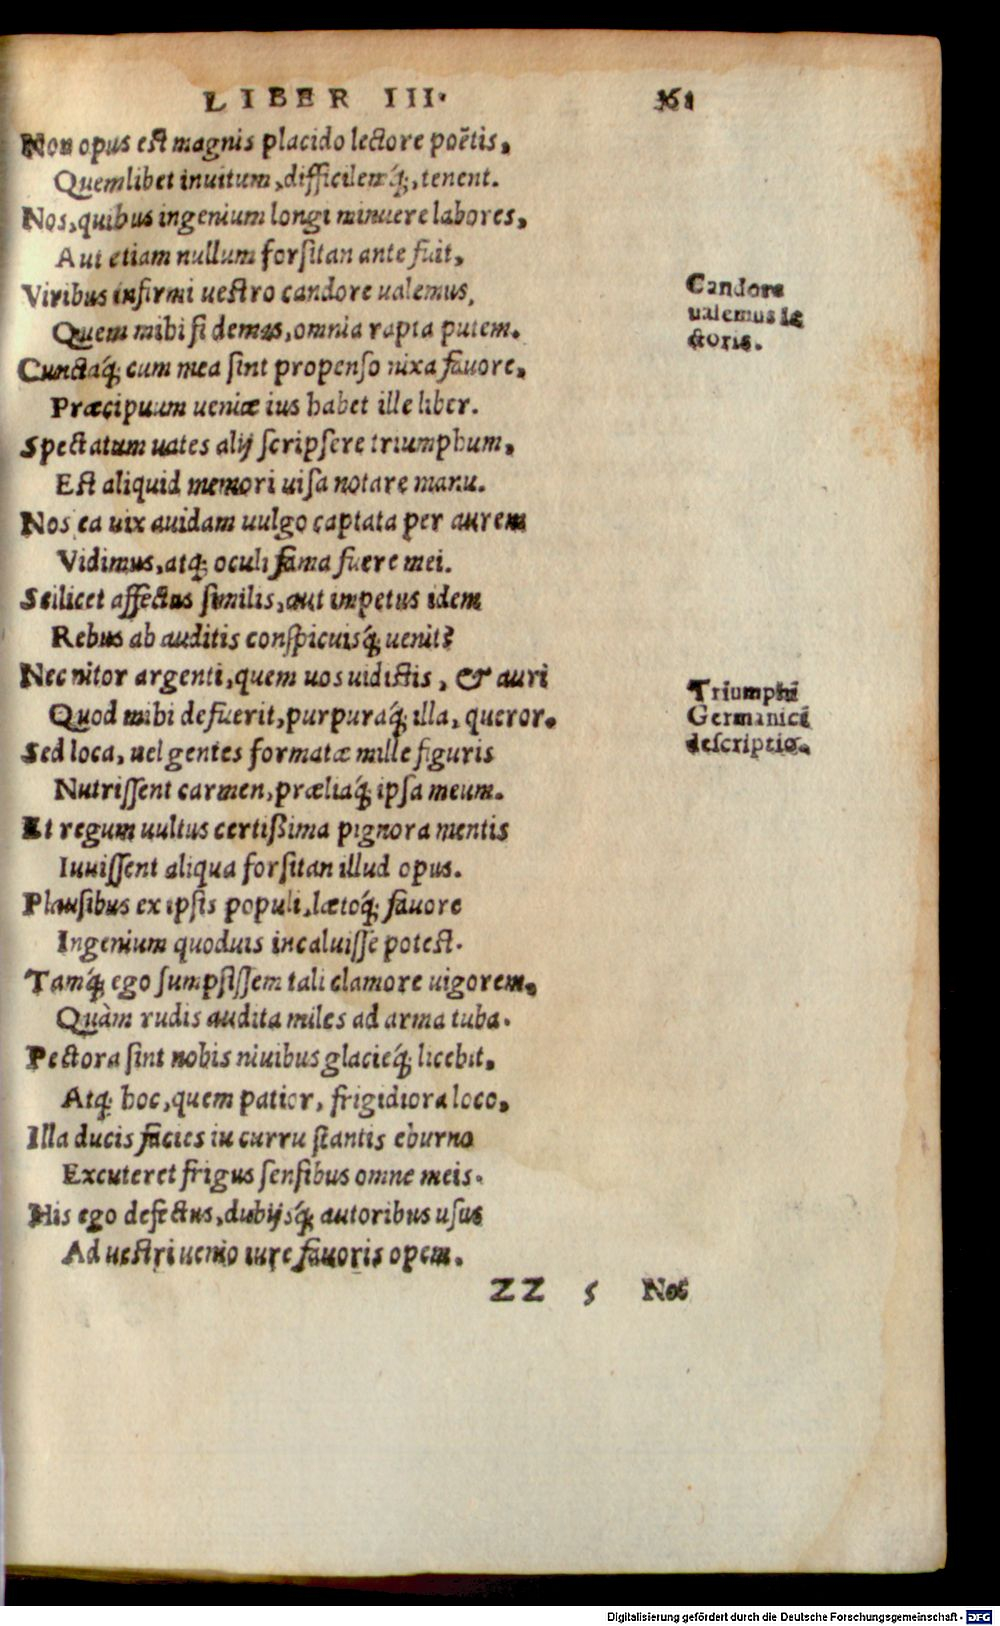 LIBER III. 361
Non opus est magnis placido lectore poëtis,
Quemlibet inuitum, difficilemq́;, tenent.
Nos, quibus ingenium longi minuere labores,
Aut etiam nullum forsitan ante fuit,
Viribus infirmi uestro candore ualemus,
Quem mihi si demas, omnia rapta putem.
Cunctaq́; cum mea sint propenso nixa fauore,
Præcipuum ueniæ ius habet ille liber.
Spectatum uates alij scripsere triumphum,
Est aliquid memori uisa notare manu.
Nos ea uix auidam uulgo captata per aurem
Vidimus, atq; oculi fama fuere mei.
Scilicet affectus similis, aut impetus idem
Rebus ab auditis conspicuisq́; uenit?
Nec nitor argenti, quem uos uidistis, & auri
Quod mihi defuerit, purpuraq́; illa, queror.
Sed loca, uel gentes formatæ mille figuris
Nutrissent carmen, præliaq́; ipsa meum.
Et regum uultus certißima pignora mentis
Iuuissent aliqua forsitan illud opus.
Plausibus ex ipsis populi, lætoq́; fauore
Ingenium quoduis incaluisse potest.
Tamq́; ego sumpsissem tali clamore uigorem,
Quàm rudis audita miles ad arma tuba.
Pectora sint nobis niuibus glacieq́; licebit,
Atq; hoc, quem patior, frigidiora loco,
Illa ducis facies in curru stantis eburno
Excuteret frigus sensibus omne meis.
His ego defectus, dubijsq́; autoribus usus
Ad uestri uenio iure fauoris opem.
ZZ 5 Nec
Candore
ualemus le
ctoris.
Triumphi
Germanici
descriptio.
Digitalisierung gefördert durch die Deutsche Forschungsgemeinschaft - DFG